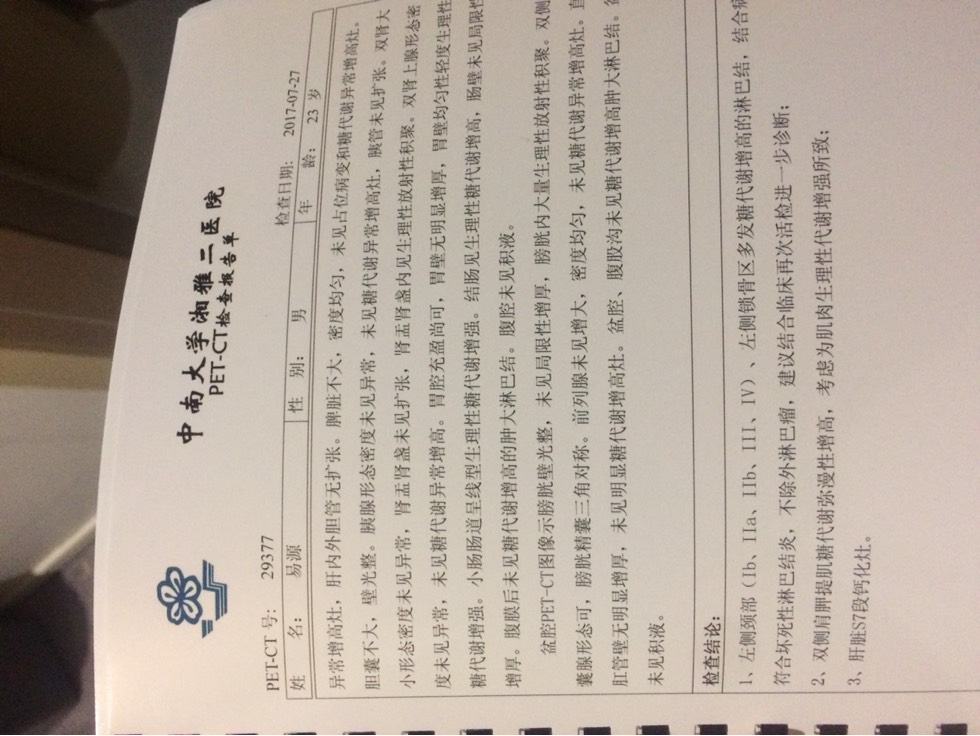 中南大学湘雅二医院
PET-CT检查报告单
PET-CT 号： 29377 检查日期： 2017-07-27
姓 名： 易源 性 别： 男 年 龄： 23 岁
异常增高灶，肝内外胆管无扩张。脾脏不大，密度均匀，未见占位病变和糖代谢异常增高灶。
胆囊不大，壁光整。胰腺形态密度未见异常，未见糖代谢异常增高灶，胰管未见扩张。双肾大
小形态密度未见异常，肾盂肾盏未见扩张，肾盂肾盏内见生理性放射性积聚。双肾上腺形态密
度未见异常，未见糖代谢异常增高。胃腔充盈尚可，胃壁无明显增厚，胃壁均匀性轻度生理性
糖代谢增强。小肠肠道呈线型生理性糖代谢增强。结肠见生理性糖代谢增高，肠壁未见局限性
增厚。腹膜后未见糖代谢增高的肿大淋巴结。腹腔未见积液。
盆腔PET-CT图像示膀胱壁光整，未见局限性增厚，膀胱内大量生理性放射性积聚。双侧
囊腺形态可，膀胱精囊三角对称。前列腺未见增大，密度均匀，未见糖代谢异常增高灶。直
肛管壁无明显增厚，未见明显糖代谢增高灶。盆腔、腹股沟未见糖代谢增高肿大淋巴结。
未见积液。
检查结论：
1、左侧颈部（Ib、IIa、IIb、III、IV）、左侧锁骨区多发糖代谢增高的淋巴结，结合病
符合坏死性淋巴结炎，不除外淋巴瘤，建议结合临床再次活检进一步诊断；
2、双侧肩胛提肌糖代谢弥漫性增高，考虑为肌肉生理性代谢增强所致；
3、肝脏S7段钙化灶。